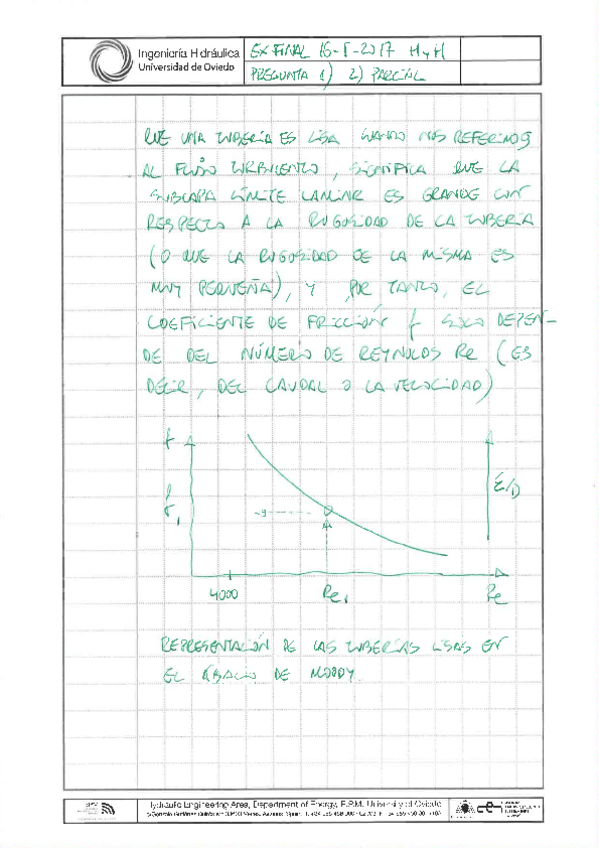 Ingeniería Hidráulica
Universidad de Oviedo
EX FINAL 16-I-2017 H y H
PREGUNTA 1) 2) PARCIAL
QUE UNA TUBERÍA ES LISA CUANDO NOS REFERIMOS
AL FLUJO TURBULENTO, SIGNIFICA QUE LA
SUBCAPA LÍMITE LAMINAR ES GRANDE CON
RESPECTO A LA RUGOSIDAD DE LA TUBERÍA
(O QUE LA RUGOSIDAD DE LA MISMA ES
MUY PEQUEÑA), Y POR TANTO, EL
COEFICIENTE DE FRICCIÓN f SÓLO DEPEN-
DE DEL NÚMERO DE REYNOLDS Re (ES
DECIR, DEL CAUDAL O LA VELOCIDAD)
f
f1
ε/D
4000 Re1 Re
REPRESENTACIÓN DE LAS TUBERÍAS LISAS EN
EL ÁBACO DE MOODY.
Hydraulic Engineering Area, Department of Energy, E.P.M. University of Oviedo